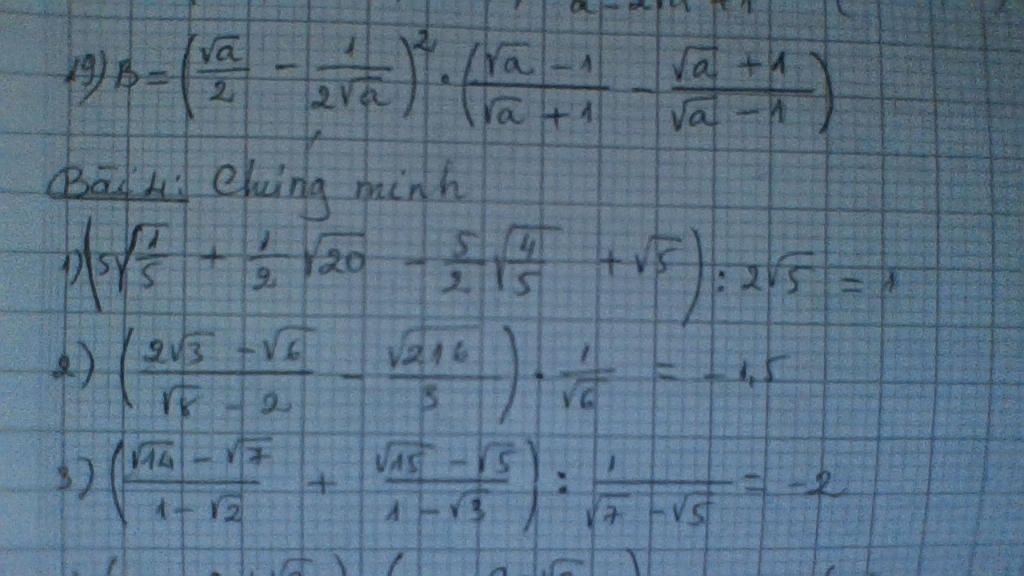 19) B = (√a/2 − 1/(2√a))² · ((√a − 1)/(√a + 1) − (√a + 1)/(√a − 1))
Bài 4: Chứng minh
1) (5√(1/5) + 1/2 √20 − 5/2 √(4/5) + √5) : 2√5 = 1
2) ((2√3 − √6)/(√8 − 2) − √216/3) · 1/√6 = −1,5
3) ((√14 − √7)/(1 − √2) + (√15 − √5)/(1 − √3)) : 1/(√7 − √5) = −2